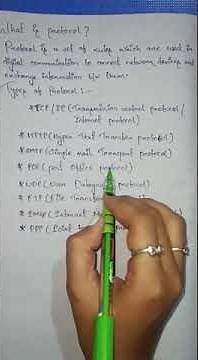 What is protocol?
Protocol is a set of rules which are used in
digital communication to connect network devices and
exchange information b/w them.
Types of Protocol :-
* TCP/IP (Transmission control protocol/
Internet protocol)
* HTTP (Hyper Text Transfer protocol)
* SMTP (Simple mail Transport protocol)
* POP (post Office protocol)
* UDP (User Datagram protocol)
* FTP (File Trans
* (Internet
* PPP (Point